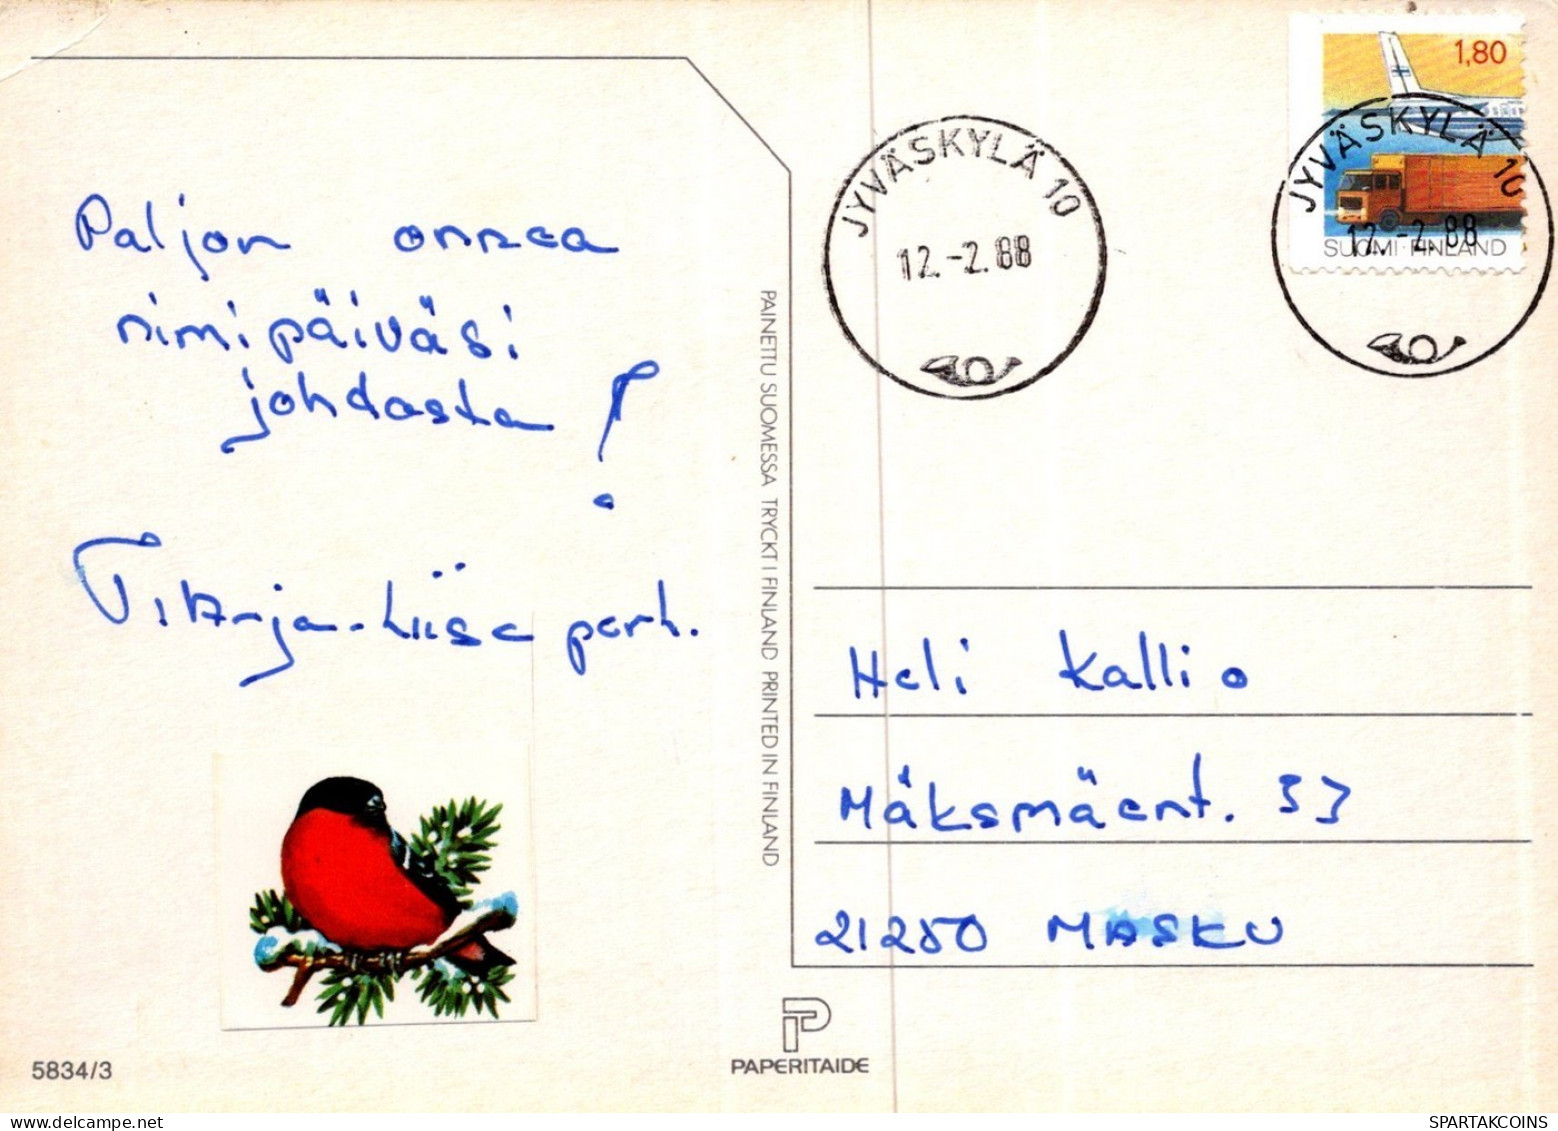 Paljon onnea
nimipäiväsi
johdosta!
T. Arja-Liisa perh.
5834/3
PAINETTU SUOMESSA TRYCKT I FINLAND PRINTED IN FINLAND
PAPERITAIDE
JYVÄSKYLÄ 10
12.-2.88
1,80
SUOMI FINLAND
JYVÄSKYLÄ 10
12.-2.88
Heli Kallio
Mäksmäent. 33
21250 MASKU
delcampe.net
SPARTAKCOINS